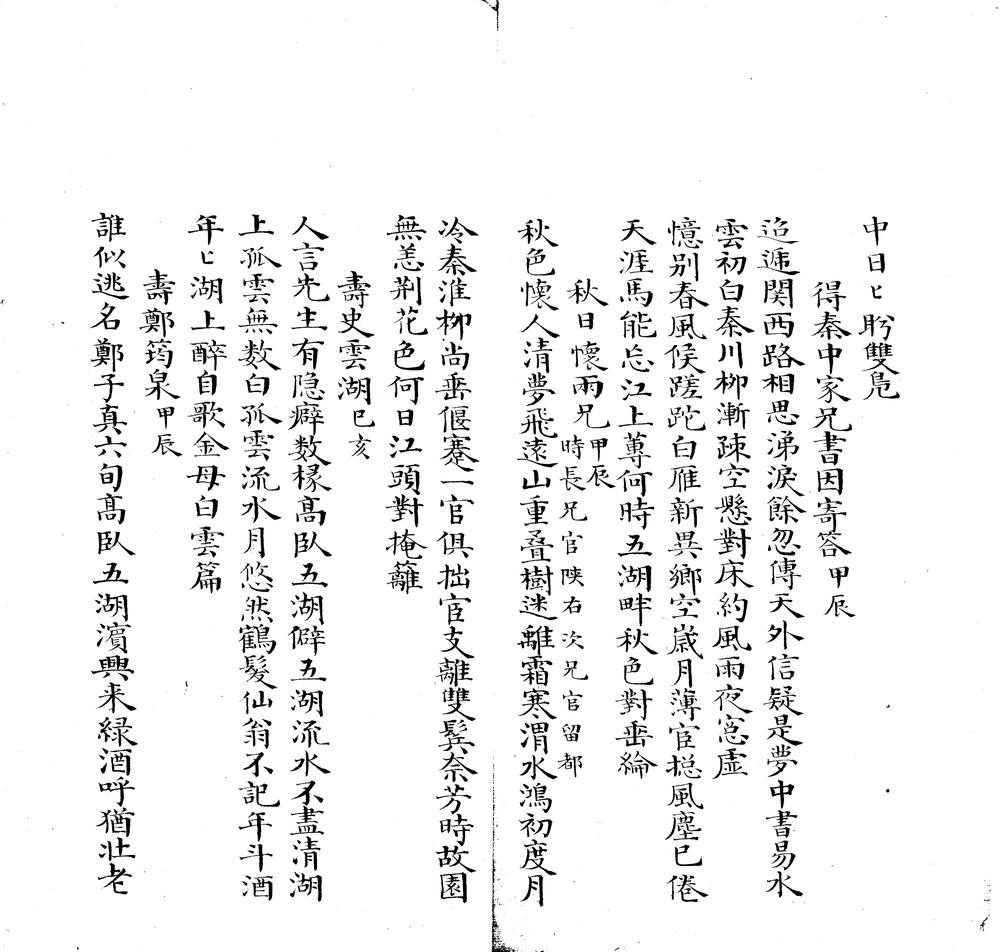 中日〻盼雙鳬
得秦中家兄書因寄答甲辰
迢遞関西路相思涕淚餘忽傳天外信疑是夢中書易水
雲初白秦川柳漸疎空懸對床約風雨夜窓虛
憶别春風候蹉跎白雁新異鄉空歲月薄宦揔風塵已倦
天涯馬能忘江上蓴何時五湖畔秋色對垂綸
秋日懷兩兄甲辰時長兄官陝右次兄官留都
秋色懷人清夢飛遠山重疊樹迷離霜寒渭水鴻初度月
冷秦淮栁尚垂偃蹇一官俱拙宦支離雙鬂奈芳時故園
無恙荆花色何日江頭對掩籬
壽史雲湖己亥
人言先生有隠癖数椽髙臥五湖僻五湖流水不盡清湖
上孤雲無数白孤雲流水月悠然鶴髪仙翁不記年斗酒
年〻湖上醉自歌金母白雲篇
壽鄭筠泉甲辰
誰似逃名鄭子真六旬髙臥五湖濵興来緑酒呼猶壮老